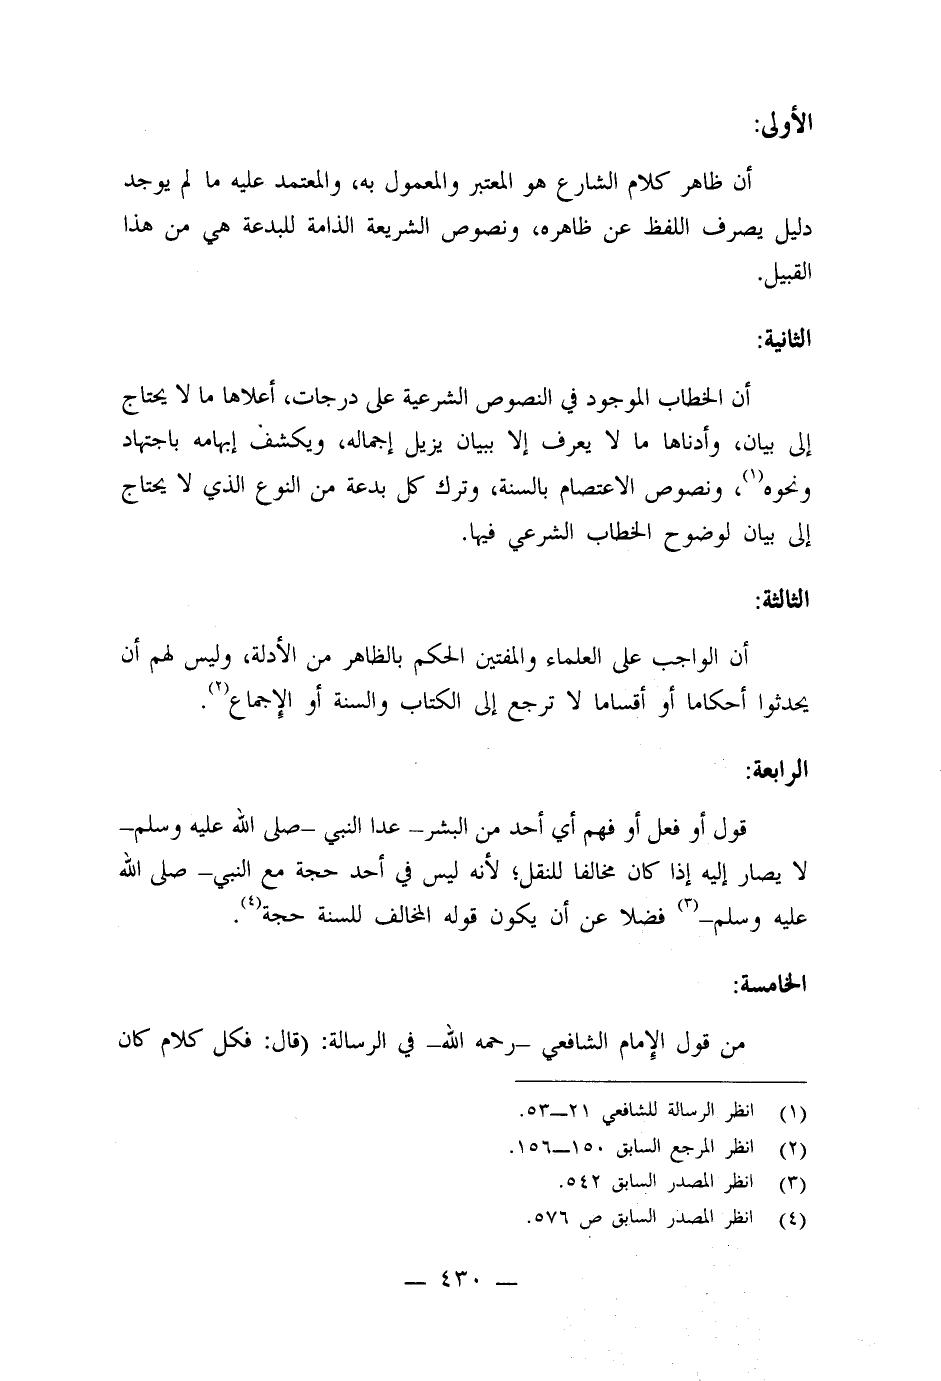 الأولى:
أن ظاهر كلام الشارع هو المعتبر والمعمول به، والمعتمد عليه ما لم يوجد
دليل يصرف اللفظ عن ظاهره، ونصوص الشريعة الذامة للبدعة هي من هذا
القبيل.
الثانية:
أن الخطاب الموجود في النصوص الشرعية على درجات، أعلاها ما لا يحتاج
إلى بيان، وأدناها ما لا يعرف إلا ببيان يزيل إجماله، ويكشف إبهامه باجتهاد
ونحوه(١)، ونصوص الاعتصام بالسنة، وترك كل بدعة من النوع الذي لا يحتاج
إلى بيان لوضوح الخطاب الشرعي فيها.
الثالثة:
أن الواجب على العلماء والمفتين الحكم بالظاهر من الأدلة، وليس لهم أن
يحدثوا أحكاما أو أقساما لا ترجع إلى الكتاب والسنة أو الإجماع(٢).
الرابعة:
قول أو فعل أو فهم أي أحد من البشر– عدا النبي –صلى الله عليه وسلم–
لا يصار إليه إذا كان مخالفا للنقل؛ لأنه ليس في أحد حجة مع النبي– صلى الله
عليه وسلم–(٣) فضلا عن أن يكون قوله المخالف للسنة حجة(٤).
الخامسة:
من قول الإمام الشافعي –رحمه الله– في الرسالة: (قال: فكل كلام كان
(١) انظر الرسالة للشافعي ٢١–٥٣.
(٢) انظر المرجع السابق ١٥٠–١٥٦.
(٣) انظر المصدر السابق ٥٤٢.
(٤) انظر المصدر السابق ص ٥٧٦.
— ٤٣٠ —